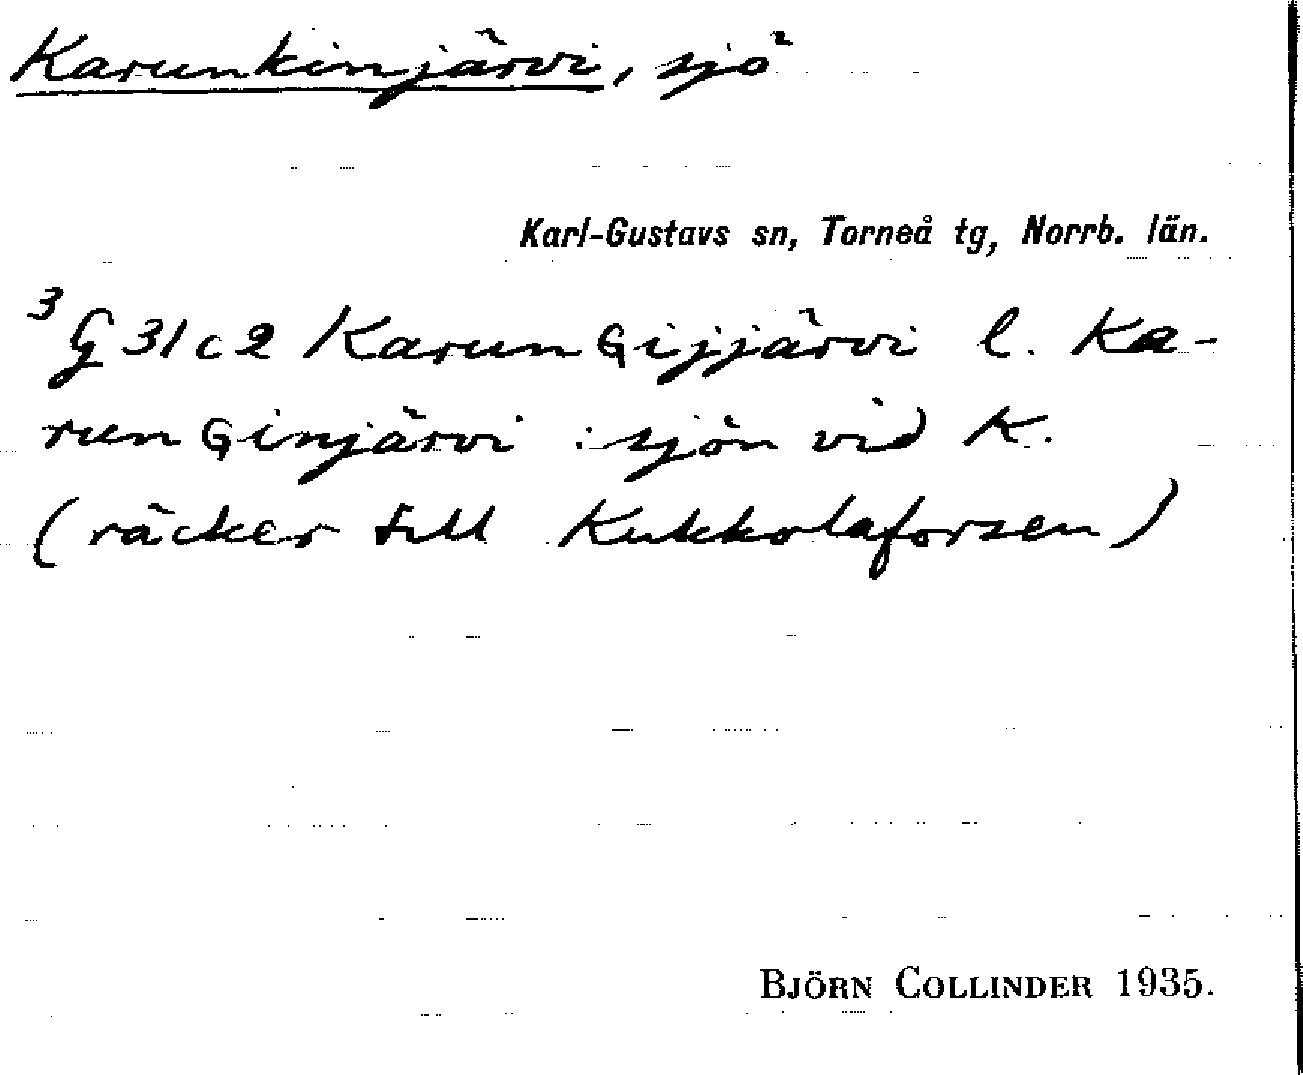 Karunkinjärvi, sjö
Karl-Gustavs sn, Torneå tg, Norrb. län.
³G 31 c 2 KarunGijjärvi l. Ka-
runGinjärvi : sjön vid K.
(räcker till Kukkolaforsen)
BJÖRN COLLINDER 1935.